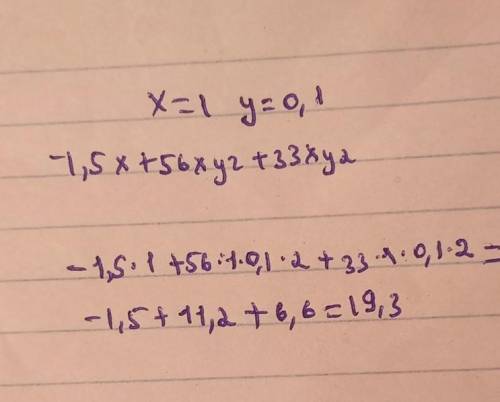 x=1 y=0,1
-1,5x+56xy2+33xy2
-1,5·1+56·1·0,1·2+33·1·0,1·2=
-1,5+11,2+6,6=19,3